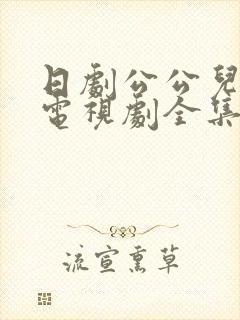 日劇公公兒
電視劇全集
流宣熏草